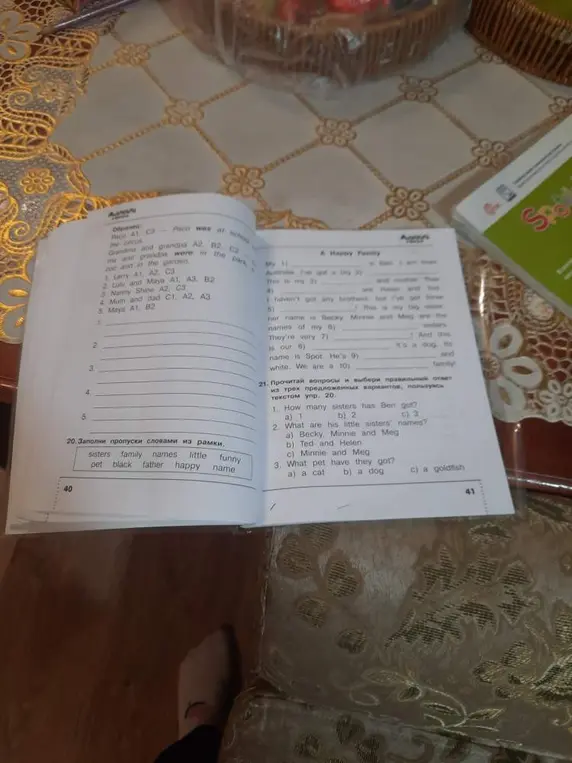 Образец:
Paco A1, C3 – Paco was at school
the circus.
Grandma and grandpa A2, B2, C2
ma and grandpa were in the park,
zoo and in the garden.
1. Larry A1, A2, C3
2. Lulu and Maya A1, A3, B2
3. Nanny Shine A2, C3
4. Mum and dad C1, A2, A3
5. Maya A1, B2
1.
2.
3.
4.
5.
20. Заполни пропуски словами из рамки.
sisters family names little funny
pet black father happy name
40
A Happy Family
My 1) is Ben. I am from
Australia. I've got a big 2)
This is my 3) and mother. Their
4) are
I haven't got any brothers, but I've got three
5) ! This is my big sister.
Her name is Becky. Minnie and Meg are the
names of my 6) sisters.
They're very 7) ! And this
is our 8) . It's a dog. Its
name is Spot. He's 9) and
white. We are a 10) family!
21. Прочитай вопросы и выбери правильный ответ
из трех предложенных вариантов, пользуясь
текстом упр. 20.
1. How many sisters has Ben got?
a) 1 b) 2 c) 3
2. What are his little sisters' names?
a) Becky, Minnie and Meg
b) Ted and Helen
c) Minnie and Meg
3. What pet have they got?
a) a cat b) a dog c) a goldfish
41